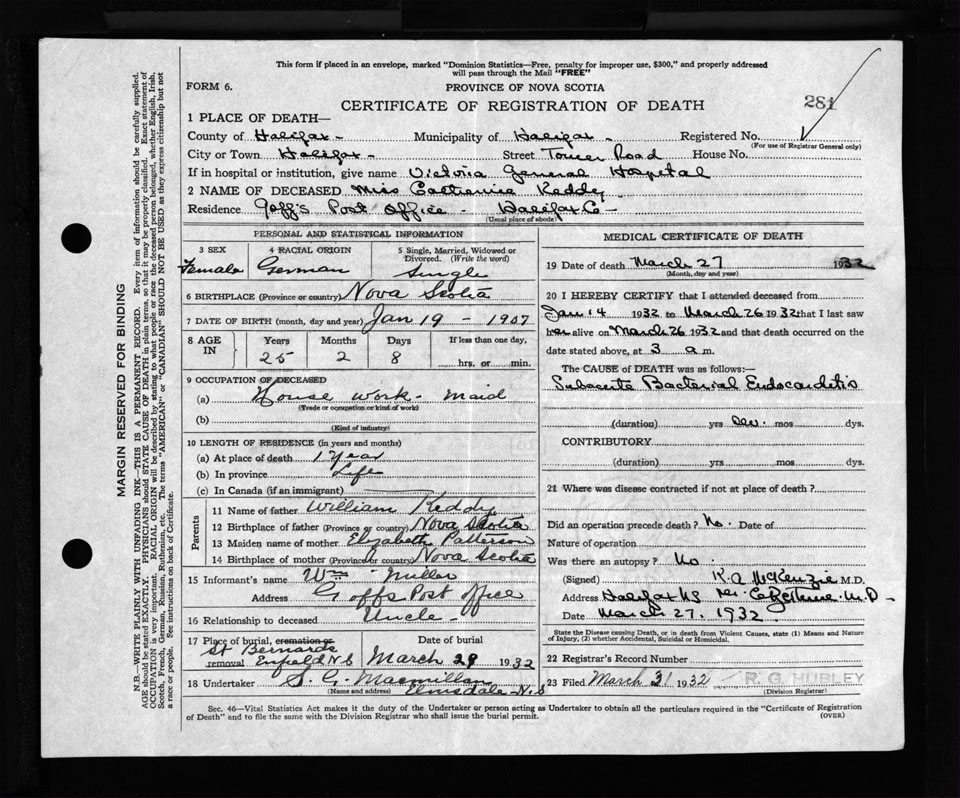 This form if placed in an envelope, marked "Dominion Statistics—Free, penalty for improper use, $300," and properly addressed
will pass through the Mail "FREE"
FORM 6.
PROVINCE OF NOVA SCOTIA
281
CERTIFICATE OF REGISTRATION OF DEATH
1 PLACE OF DEATH—
County of Halifax - Municipality of Halifax - Registered No.
(For use of Registrar General only)
City or Town Halifax - Street Tower Road House No.
If in hospital or institution, give name Victoria General Hospital
2 NAME OF DECEASED Miss Keddy
Residence Goff's Post Office - Halifax Co -
(Usual place of abode)
PERSONAL AND STATISTICAL INFORMATION
3 SEX 4 RACIAL ORIGIN 5 Single, Married, Widowed or Divorced. (Write the word)
Female German Single
6 BIRTHPLACE (Province or country) Nova Scotia
7 DATE OF BIRTH (month, day and year) Jan 19 - 1907
8 AGE IN Years Months Days If less than one day,
25 2 8 hrs. or min.
9 OCCUPATION OF DECEASED
(a) House work - maid
(Trade or occupation or kind of work)
(b)
(Kind of industry)
10 LENGTH OF RESIDENCE (in years and months)
(a) At place of death 1 Year
(b) In province Life
(c) In Canada (if an immigrant)
Parents
11 Name of father William Keddy
12 Birthplace of father (Province or country) Nova Scotia
13 Maiden name of mother Elizabeth Patterson
14 Birthplace of mother (Province or country) Nova Scotia
15 Informant's name Wm Miller
Address Goffs Post Office
16 Relationship to deceased Uncle
17 Place of burial, cremation or removal St Bernards Enfield N.S Date of burial March 29 1932
18 Undertaker S. G. Macmillan
(Name and address) Elmsdale - N.S
MEDICAL CERTIFICATE OF DEATH
19 Date of death March 27 1932
(Month, day and year)
20 I HEREBY CERTIFY that I attended deceased from
Jan 14 1932 to March 26 1932 that I last saw
her alive on March 26 1932 and that death occurred on the
date stated above, at 3 a m.
The CAUSE OF DEATH was as follows:—
Subacute Bacterial Endocarditis
(duration) yrs mos dys.
CONTRIBUTORY
(duration) yrs mos dys.
21 Where was disease contracted if not at place of death?
Did an operation precede death? No. Date of
Nature of operation
Was there an autopsy? No.
(Signed) K. A. McKenzie M.D.
Address Halifax NS M.D.
Date March 27, 1932.
State the Disease causing Death, or in death from Violent Causes, state (1) Means and Nature
of Injury, (2) whether Accidental, Suicidal or Homicidal.
22 Registrar's Record Number
23 Filed March 31 1932 R. G. HUBLEY
(Division Registrar)
Sec. 46—Vital Statistics Act makes it the duty of the Undertaker or person acting as Undertaker to obtain all the particulars required in the "Certificate of Registration
of Death" and to file the same with the Division Registrar who shall issue the burial permit.
(OVER)
MARGIN RESERVED FOR BINDING
N.B.—WRITE PLAINLY WITH UNFADING INK—THIS IS A PERMANENT RECORD. Every item of information should be carefully supplied.
AGE should be stated EXACTLY. PHYSICIANS should STATE CAUSE OF DEATH in plain terms, so that it may be properly classified. Exact statement of
OCCUPATION is very important. RACIAL ORIGIN will be described by stating to what people or race the deceased person belonged, whether English, Irish,
Scotch, French, German, Russian, Ruthenian, etc. The terms "AMERICAN" or "CANADIAN" SHOULD NOT BE USED as they express citizenship but not
a race or people. See instructions on back of Certificate.